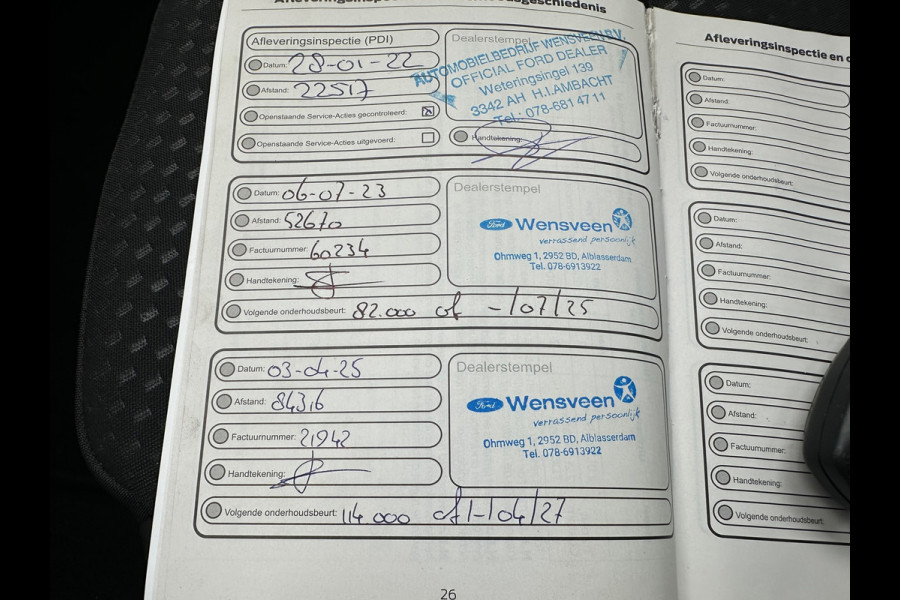 Afleveringsinspectie (PDI)
Datum: 28-01-22
Afstand: 22517
Openstaande Service-Acties gecontroleerd:
Openstaande Service-Acties uitgevoerd:
Dealerstempel
AUTOMOBIELBEDRIJF WENSVEEN B.V.
OFFICIAL FORD DEALER
Weteringsingel 139
3342 AH H.I.AMBACHT
Tel.: 078-681 47 11
Handtekening:
Datum: 06-07-23
Afstand: 52670
Factuurnummer: 60234
Handtekening:
Volgende onderhoudsbeurt: 82.000 of -/07/25
Dealerstempel
Ford Wensveen
verrassend persoonlijk
Ohmweg 1, 2952 BD, Alblasserdam
Tel. 078-6913922
Datum: 03-04-25
Afstand: 84316
Factuurnummer: 21942
Handtekening:
Volgende onderhoudsbeurt: 114.000 of -/04/27
Dealerstempel
Ford Wensveen
verrassend persoonlijk
Ohmweg 1, 2952 BD, Alblasserdam
Tel. 078-6913922
26
Afleveringsinspectie en
Datum:
Afstand:
Factuurnummer:
Handtekening:
Volgende onderhoudsbeurt:
Datum:
Afstand:
Factuurnummer:
Handtekening:
Volgende onderhoudsbeurt:
Datum:
Afstand:
Factuurnummer:
Handtekening:
Volgende onderhoudsbeurt: